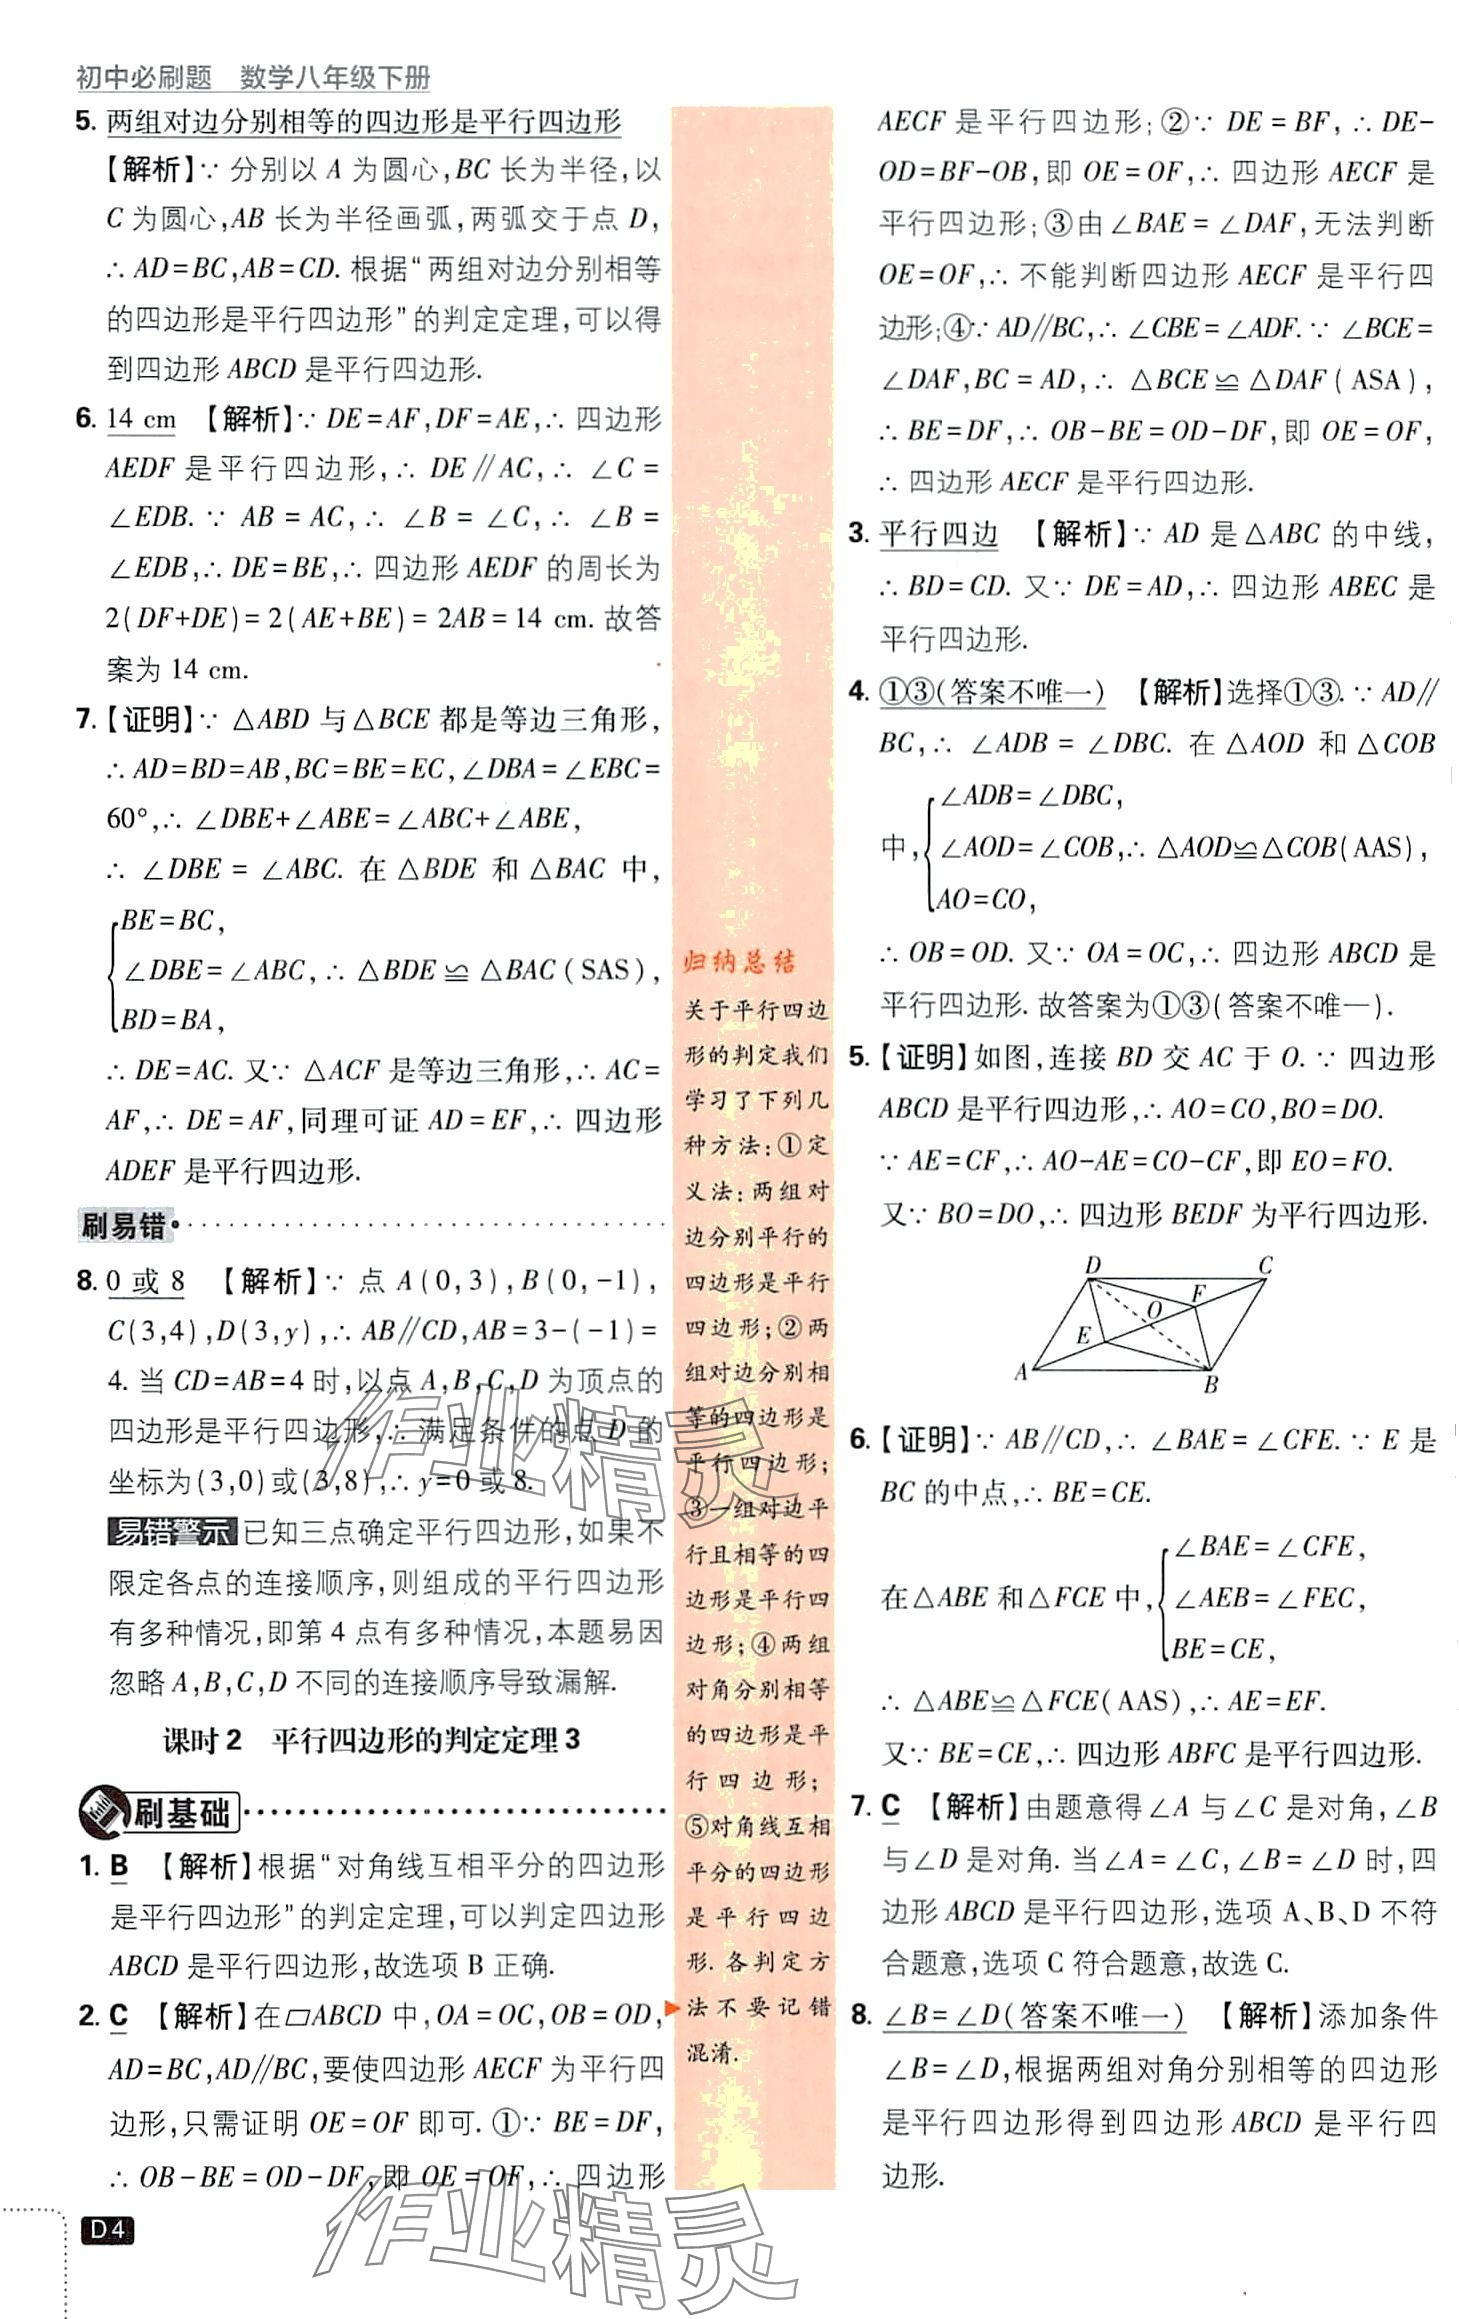 初中必刷题 数学八年级下册
5. 两组对边分别相等的四边形是平行四边形
【解析】∵ 分别以 A 为圆心,BC 长为半径,以
C 为圆心,AB 长为半径画弧,两弧交于点 D,
∴ AD=BC,AB=CD. 根据“两组对边分别相等
的四边形是平行四边形”的判定定理,可以得
到四边形 ABCD 是平行四边形.
6. 14 cm 【解析】∵ DE=AF,DF=AE,∴ 四边形
AEDF 是平行四边形,∴ DE∥AC,∴ ∠C=
∠EDB. ∵ AB=AC,∴ ∠B=∠C,∴ ∠B=
∠EDB,∴ DE=BE,∴ 四边形 AEDF 的周长为
2(DF+DE)=2(AE+BE)=2AB=14 cm. 故答
案为 14 cm.
7.【证明】∵ △ABD 与△BCE 都是等边三角形,
∴ AD=BD=AB,BC=BE=EC,∠DBA=∠EBC=
60°,∴ ∠DBE+∠ABE=∠ABC+∠ABE,
∴ ∠DBE=∠ABC. 在△BDE 和△BAC 中,
BE=BC,
∠DBE=∠ABC,∴ △BDE≌△BAC(SAS),
BD=BA,
∴ DE=AC. 又∵ △ACF 是等边三角形,∴ AC=
AF,∴ DE=AF,同理可证 AD=EF,∴ 四边形
ADEF 是平行四边形.
刷易错
8. 0 或 8 【解析】∵ 点 A(0,3),B(0,-1),
C(3,4),D(3,y),∴ AB∥CD,AB=3-(-1)=
4. 当 CD=AB=4 时,以点 A,B,C,D 为顶点的
四边形是平行四边形,∴ 满足条件的点 D 的
坐标为(3,0)或(3,8),∴ y=0 或 8.
易错警示 已知三点确定平行四边形,如果不
限定各点的连接顺序,则组成的平行四边形
有多种情况,即第 4 点有多种情况,本题易因
忽略 A,B,C,D 不同的连接顺序导致漏解.
课时 2 平行四边形的判定定理 3
刷基础
1. B 【解析】根据“对角线互相平分的四边形
是平行四边形”的判定定理,可以判定四边形
ABCD 是平行四边形,故选项 B 正确.
2. C 【解析】在▱ABCD 中,OA=OC,OB=OD,
AD=BC,AD∥BC,要使四边形 AECF 为平行四
边形,只需证明 OE=OF 即可. ①∵ BE=DF,
∴ OB-BE=OD-DF,即 OE=OF,∴ 四边形
D4
归纳总结
关于平行四边
形的判定我们
学习了下列几
种方法:①定
义法:两组对
边分别平行的
四边形是平行
四边形;②两
组对边分别相
等的四边形是
平行四边形;
③一组对边平
行且相等的四
边形是平行四
边形;④两组
对角分别相等
的四边形是平
行四边形;
⑤对角线互相
平分的四边形
是平行四边
形. 各判定方
法不要记错
混淆.
AECF 是平行四边形;②∵ DE=BF,∴ DE-
OD=BF-OB,即 OE=OF,∴ 四边形 AECF 是
平行四边形;③由∠BAE=∠DAF,无法判断
OE=OF,∴ 不能判断四边形 AECF 是平行四
边形;④∵ AD∥BC,∴ ∠CBE=∠ADF. ∵ ∠BCE=
∠DAF,BC=AD,∴ △BCE≌△DAF(ASA),
∴ BE=DF,∴ OB-BE=OD-DF,即 OE=OF,
∴ 四边形 AECF 是平行四边形.
3. 平行四边 【解析】∵ AD 是△ABC 的中线,
∴ BD=CD. 又∵ DE=AD,∴ 四边形 ABEC 是
平行四边形.
4. ①③(答案不唯一) 【解析】选择①③. ∵ AD∥
BC,∴ ∠ADB=∠DBC. 在△AOD 和△COB
∠ADB=∠DBC,
中, ∠AOD=∠COB,∴ △AOD≌△COB(AAS),
AO=CO,
∴ OB=OD. 又∵ OA=OC,∴ 四边形 ABCD 是
平行四边形. 故答案为①③(答案不唯一).
5.【证明】如图,连接 BD 交 AC 于 O. ∵ 四边形
ABCD 是平行四边形,∴ AO=CO,BO=DO.
∵ AE=CF,∴ AO-AE=CO-CF,即 EO=FO.
又∵ BO=DO,∴ 四边形 BEDF 为平行四边形.
D C
F
O
E
A B
6.【证明】∵ AB∥CD,∴ ∠BAE=∠CFE. ∵ E 是
BC 的中点,∴ BE=CE.
∠BAE=∠CFE,
在△ABE 和△FCE 中, ∠AEB=∠FEC,
BE=CE,
∴ △ABE≌△FCE(AAS),∴ AE=EF.
又∵ BE=CE,∴ 四边形 ABFC 是平行四边形.
7. C 【解析】由题意得∠A 与∠C 是对角,∠B
与∠D 是对角. 当∠A=∠C,∠B=∠D 时,四
边形 ABCD 是平行四边形,选项 A、B、D 不符
合题意,选项 C 符合题意,故选 C.
8. ∠B=∠D(答案不唯一) 【解析】添加条件
∠B=∠D,根据两组对角分别相等的四边形
是平行四边形得到四边形 ABCD 是平行四
边形.
作业精灵
作业精灵